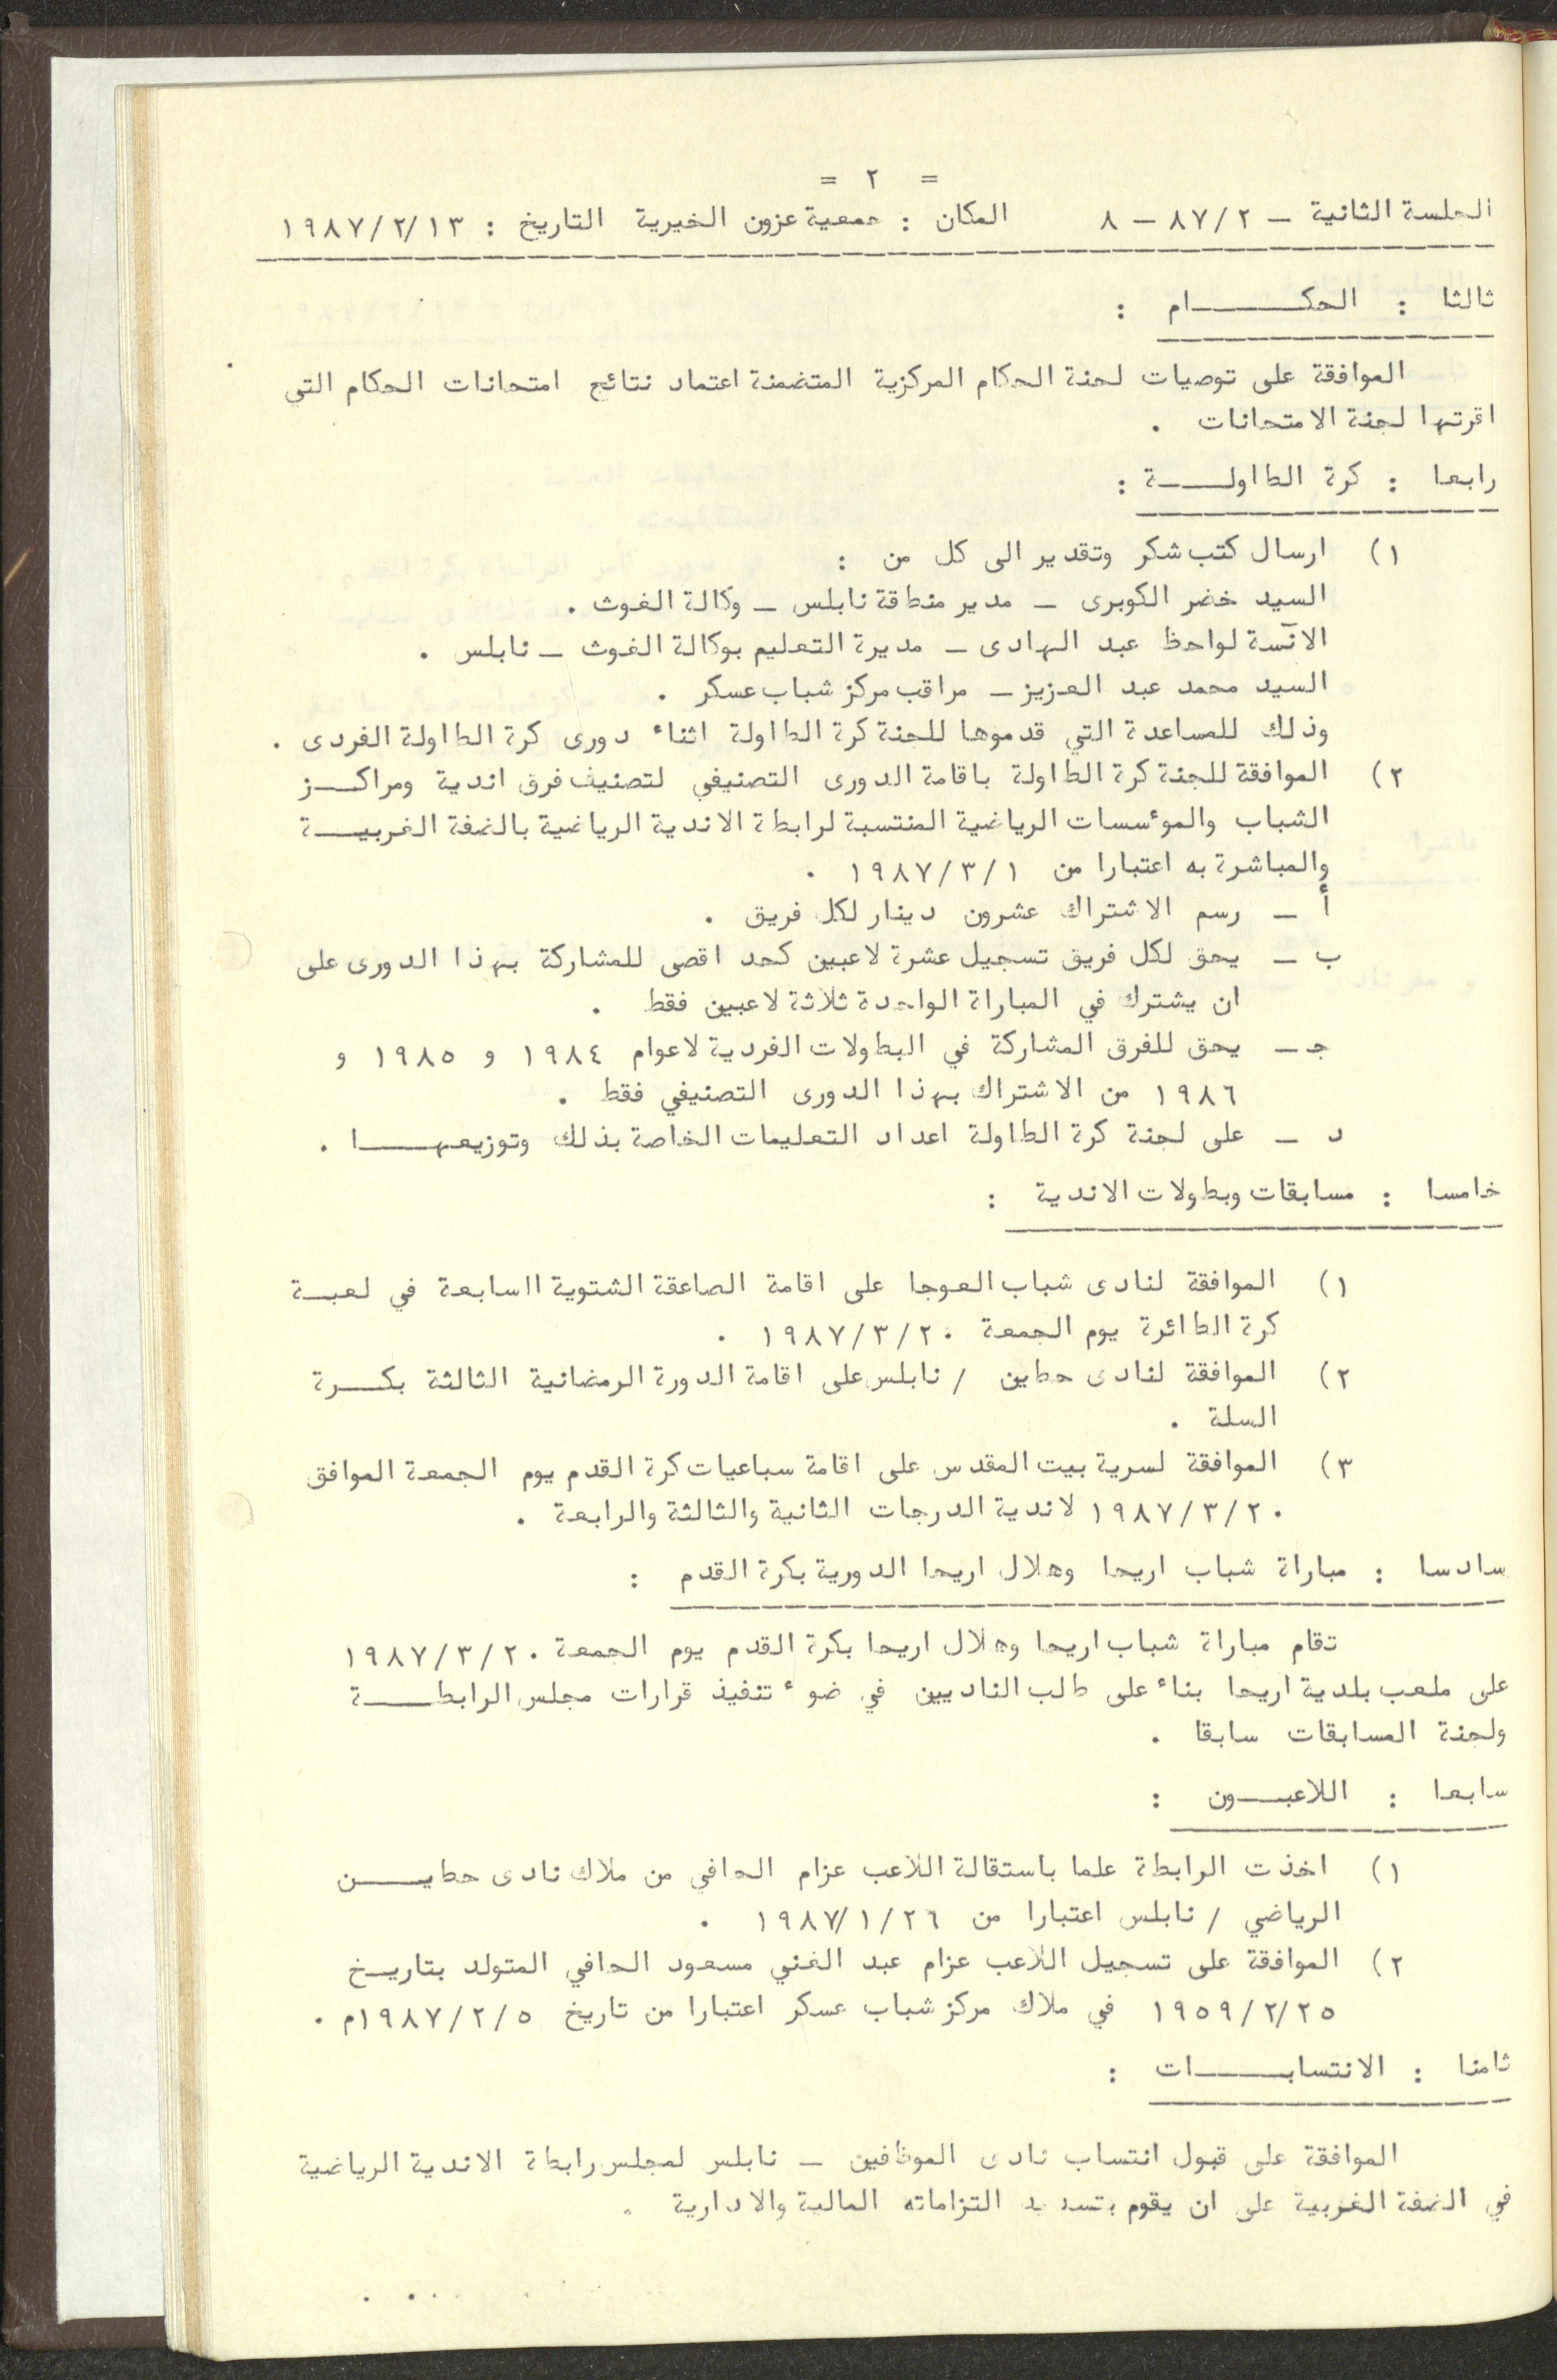 = ٢ =
الجلسة الثانية – ٨٧/٢ – ٨ المكان : جمعية عزون الخيرية التاريخ : ١٩٨٧/٢/١٣
ثالثا : الحكـــــــام :
الموافقة على توصيات لجنة الحكام المركزية المتضمنة اعتماد نتائج امتحانات الحكام التي
اقرتها لجنة الامتحانات .
رابعا : كرة الطاولـــــة :
١) ارسال كتب شكر وتقدير الى كل من :
السيد خضر الكوبرى – مدير منطقة نابلس – وكالة الغوث .
الآنسة لواحظ عبد الهادى – مديرة التعليم بوكالة الغوث – نابلس .
السيد محمد عبد العزيز – مراقب مركز شباب عسكر .
وذلك للمساعدة التي قدموها للجنة كرة الطاولة اثناء دورى كرة الطاولة الفردى .
٢) الموافقة للجنة كرة الطاولة باقامة الدورى التصنيفي لتصنيف فرق اندية ومراكـــز
الشباب والمؤسسات الرياضية المنتسبة لرابطة الاندية الرياضية بالضفة الغربيـــة
والمباشرة به اعتبارا من ١٩٨٧/٣/١ .
أ – رسم الاشتراك عشرون دينار لكل فريق .
ب – يحق لكل فريق تسجيل عشرة لاعبين كحد اقصى للمشاركة بهذا الدورى على
ان يشترك في المباراة الواحدة ثلاثة لاعبين فقط .
جـ – يحق للفرق المشاركة في البطولات الفردية لاعوام ١٩٨٤ و ١٩٨٥ و
١٩٨٦ من الاشتراك بهذا الدورى التصنيفي فقط .
د – على لجنة كرة الطاولة اعداد التعليمات الخاصة بذلك وتوزيعهـــــا .
خامسا : مسابقات وبطولات الاندية :
١) الموافقة لنادى شباب العوجا على اقامة الصاعقة الشتوية السابعة في لعبـــة
كرة الطائرة يوم الجمعة ١٩٨٧/٣/٢٠ .
٢) الموافقة لنادى حطين / نابلس على اقامة الدورة الرمضانية الثالثة بكـــرة
السلة .
٣) الموافقة لسرية بيت المقدس على اقامة سباعيات كرة القدم يوم الجمعة الموافق
١٩٨٧/٣/٢٠ لاندية الدرجات الثانية والثالثة والرابعة .
سادسا : مباراة شباب اريحا وهلال اريحا الدورية بكرة القدم :
تقام مباراة شباب اريحا وهلال اريحا بكرة القدم يوم الجمعة ١٩٨٧/٣/٢٠
على ملعب بلدية اريحا بناء على طلب الناديين في ضوء تنفيذ قرارات مجلس الرابطـــــة
ولجنة المسابقات سابقا .
سابعا : اللاعبــــون :
١) اخذت الرابطة علما باستقالة اللاعب عزام الحافي من ملاك نادى حطيـــــن
الرياضي / نابلس اعتبارا من ١٩٨٧/١/٢٦ .
٢) الموافقة على تسجيل اللاعب عزام عبد الغني مسعود الحافي المتولد بتاريـــخ
١٩٥٩/٢/٢٥ في ملاك مركز شباب عسكر اعتبارا من تاريخ ١٩٨٧/٢/٥م .
ثامنا : الانتسابـــــــات :
الموافقة على قبول انتساب نادى الموظفين – نابلس لمجلس رابطة الاندية الرياضية
في الضفة الغربية على ان يقوم بتسديد التزاماته المالية والادارية .